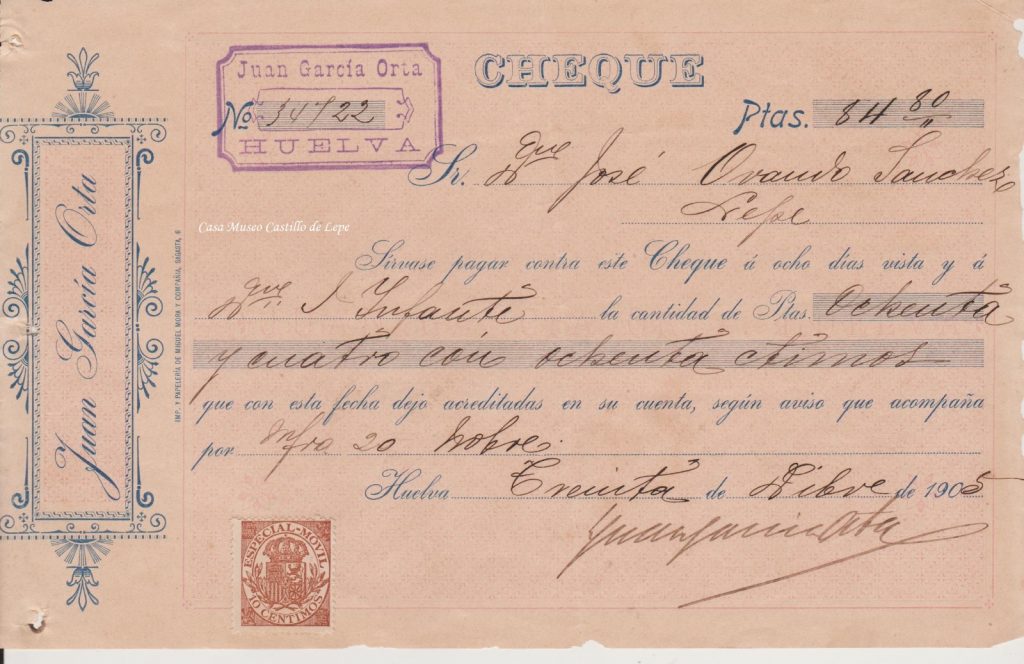 Juan García Orta
CHEQUE
Nº 34722
Ptas. 84 80
HUELVA
Sr. Dn José Ovando Sanchez
Lepe
Casa Museo Castillo de Lepe
Sírvase pagar contra este Cheque á ocho días vista y á
J Infante la cantidad de Ptas. Ochenta
y cuatro con ochenta ctimos
que con esta fecha dejo acreditadas en su cuenta, según aviso que acompaña
por 20 Nobre.
Huelva Treinta de Dibre de 1905
Juan García Orta
ESPECIAL-MOVIL
10 CENTIMOS
Juan García Orta
IMP. Y PAPELERÍA DE MIGUEL MORA Y COMPAÑIA, SAGASTA, 6